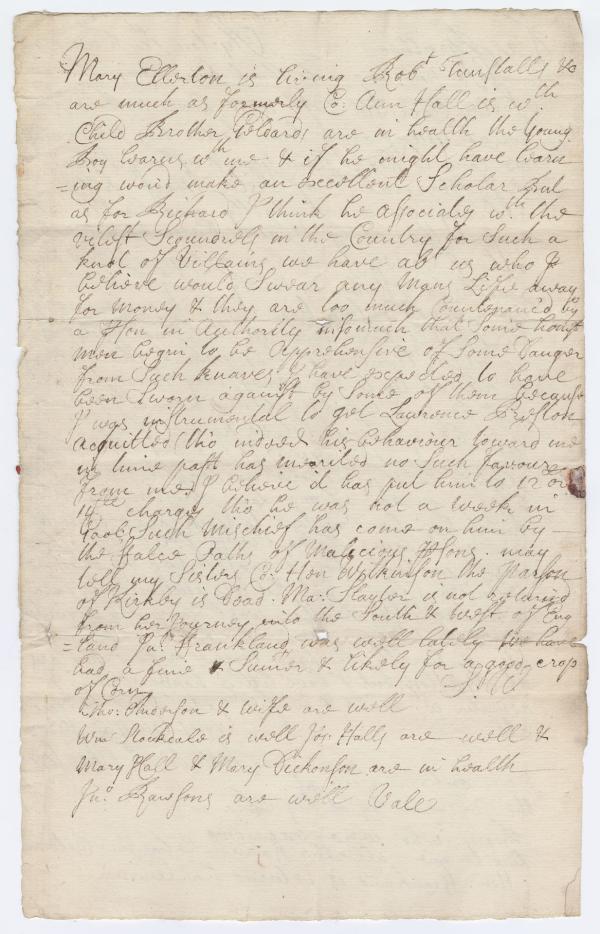 Mary Ellerton is living Robt Tunstalls &c
are much as formerly Co: Ann Hall is wth
Child Brother Geldards are in health the Young
Boy learns wth me & if he might have learn
=ing would make an excellent Scholar but
as for Richard I think he associates wth the
vilest Scoundrels in the Country for Such a
knot of Villains we have abt us who I
believe would Swear any Mans Life away
for money & they are too much Countenanc'd by
a in Authority insomuch that Some honest
men begin to be Apprehensive of Some Danger
from Such knaves I have expected to have
been Sworn against by Some of them because
I was instrumental to get Lawrence Breston
acquitted tho indeed his behaviour toward me
in time past has merited no Such favour
from me I believe it has put him to 12 or
14 charges tho he was not a week in
Goal Such Mischief has come on him by
the false Oaths of Malicious may
tell my Sisters Co: Hen Wilkinson the Parson
of Kirkby is Dead. Ma: Slayter is not returnd
from her Journey into the South & West of Eng
=land Jno Frankland was well lately we have
had a fine Sumer & likely for a good crop
of Corn
Tho: Anderson & wife are well
Wm Stockdale is well Jos: Halls are well &
Mary Hall & Mary Dickonson are in health
Jno Rawsons are well Vale